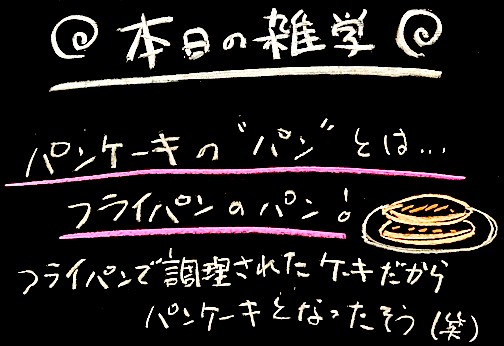 本日の雑学
パンケーキの"パン"とは...
フライパンのパン!
フライパンで調理されたケーキだから
パンケーキとなったそう(笑)